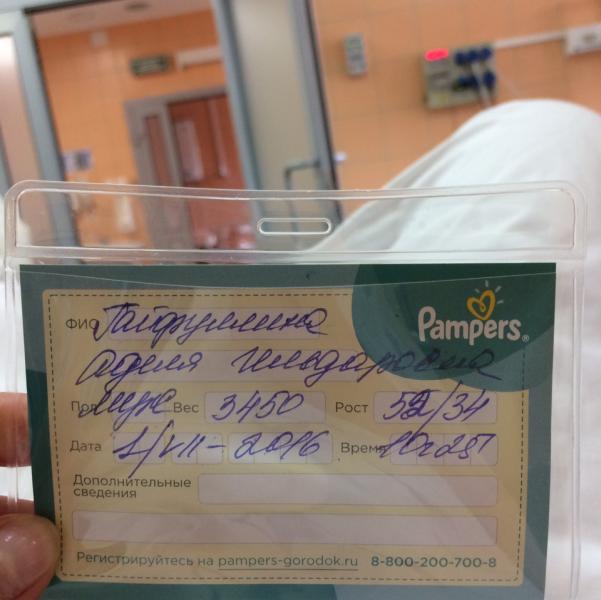 Pampers®
ФИО Гайфуллина
Аделя Ильдаровна
Пол муж Вес 3450 Рост 52/34
Дата 1/VII-2016 Время 10ч25
Дополнительные
сведения
Регистрируйтесь на pampers-gorodok.ru 8-800-200-700-8